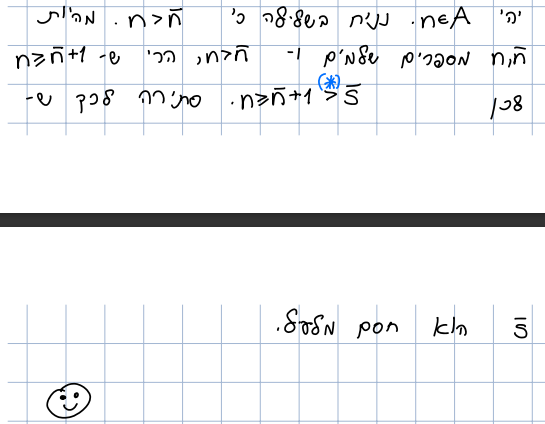 יהי n∈A. נניח בשלילה כי n>n̄. מהיות
n,n̄ מספרים שלמים ו- n>n̄, הרי ש- n≥n̄+1
(*)
לכן n≥n̄+1 > s̄. סתירה לכך ש-
s̄ הוא חסם מלעיל.